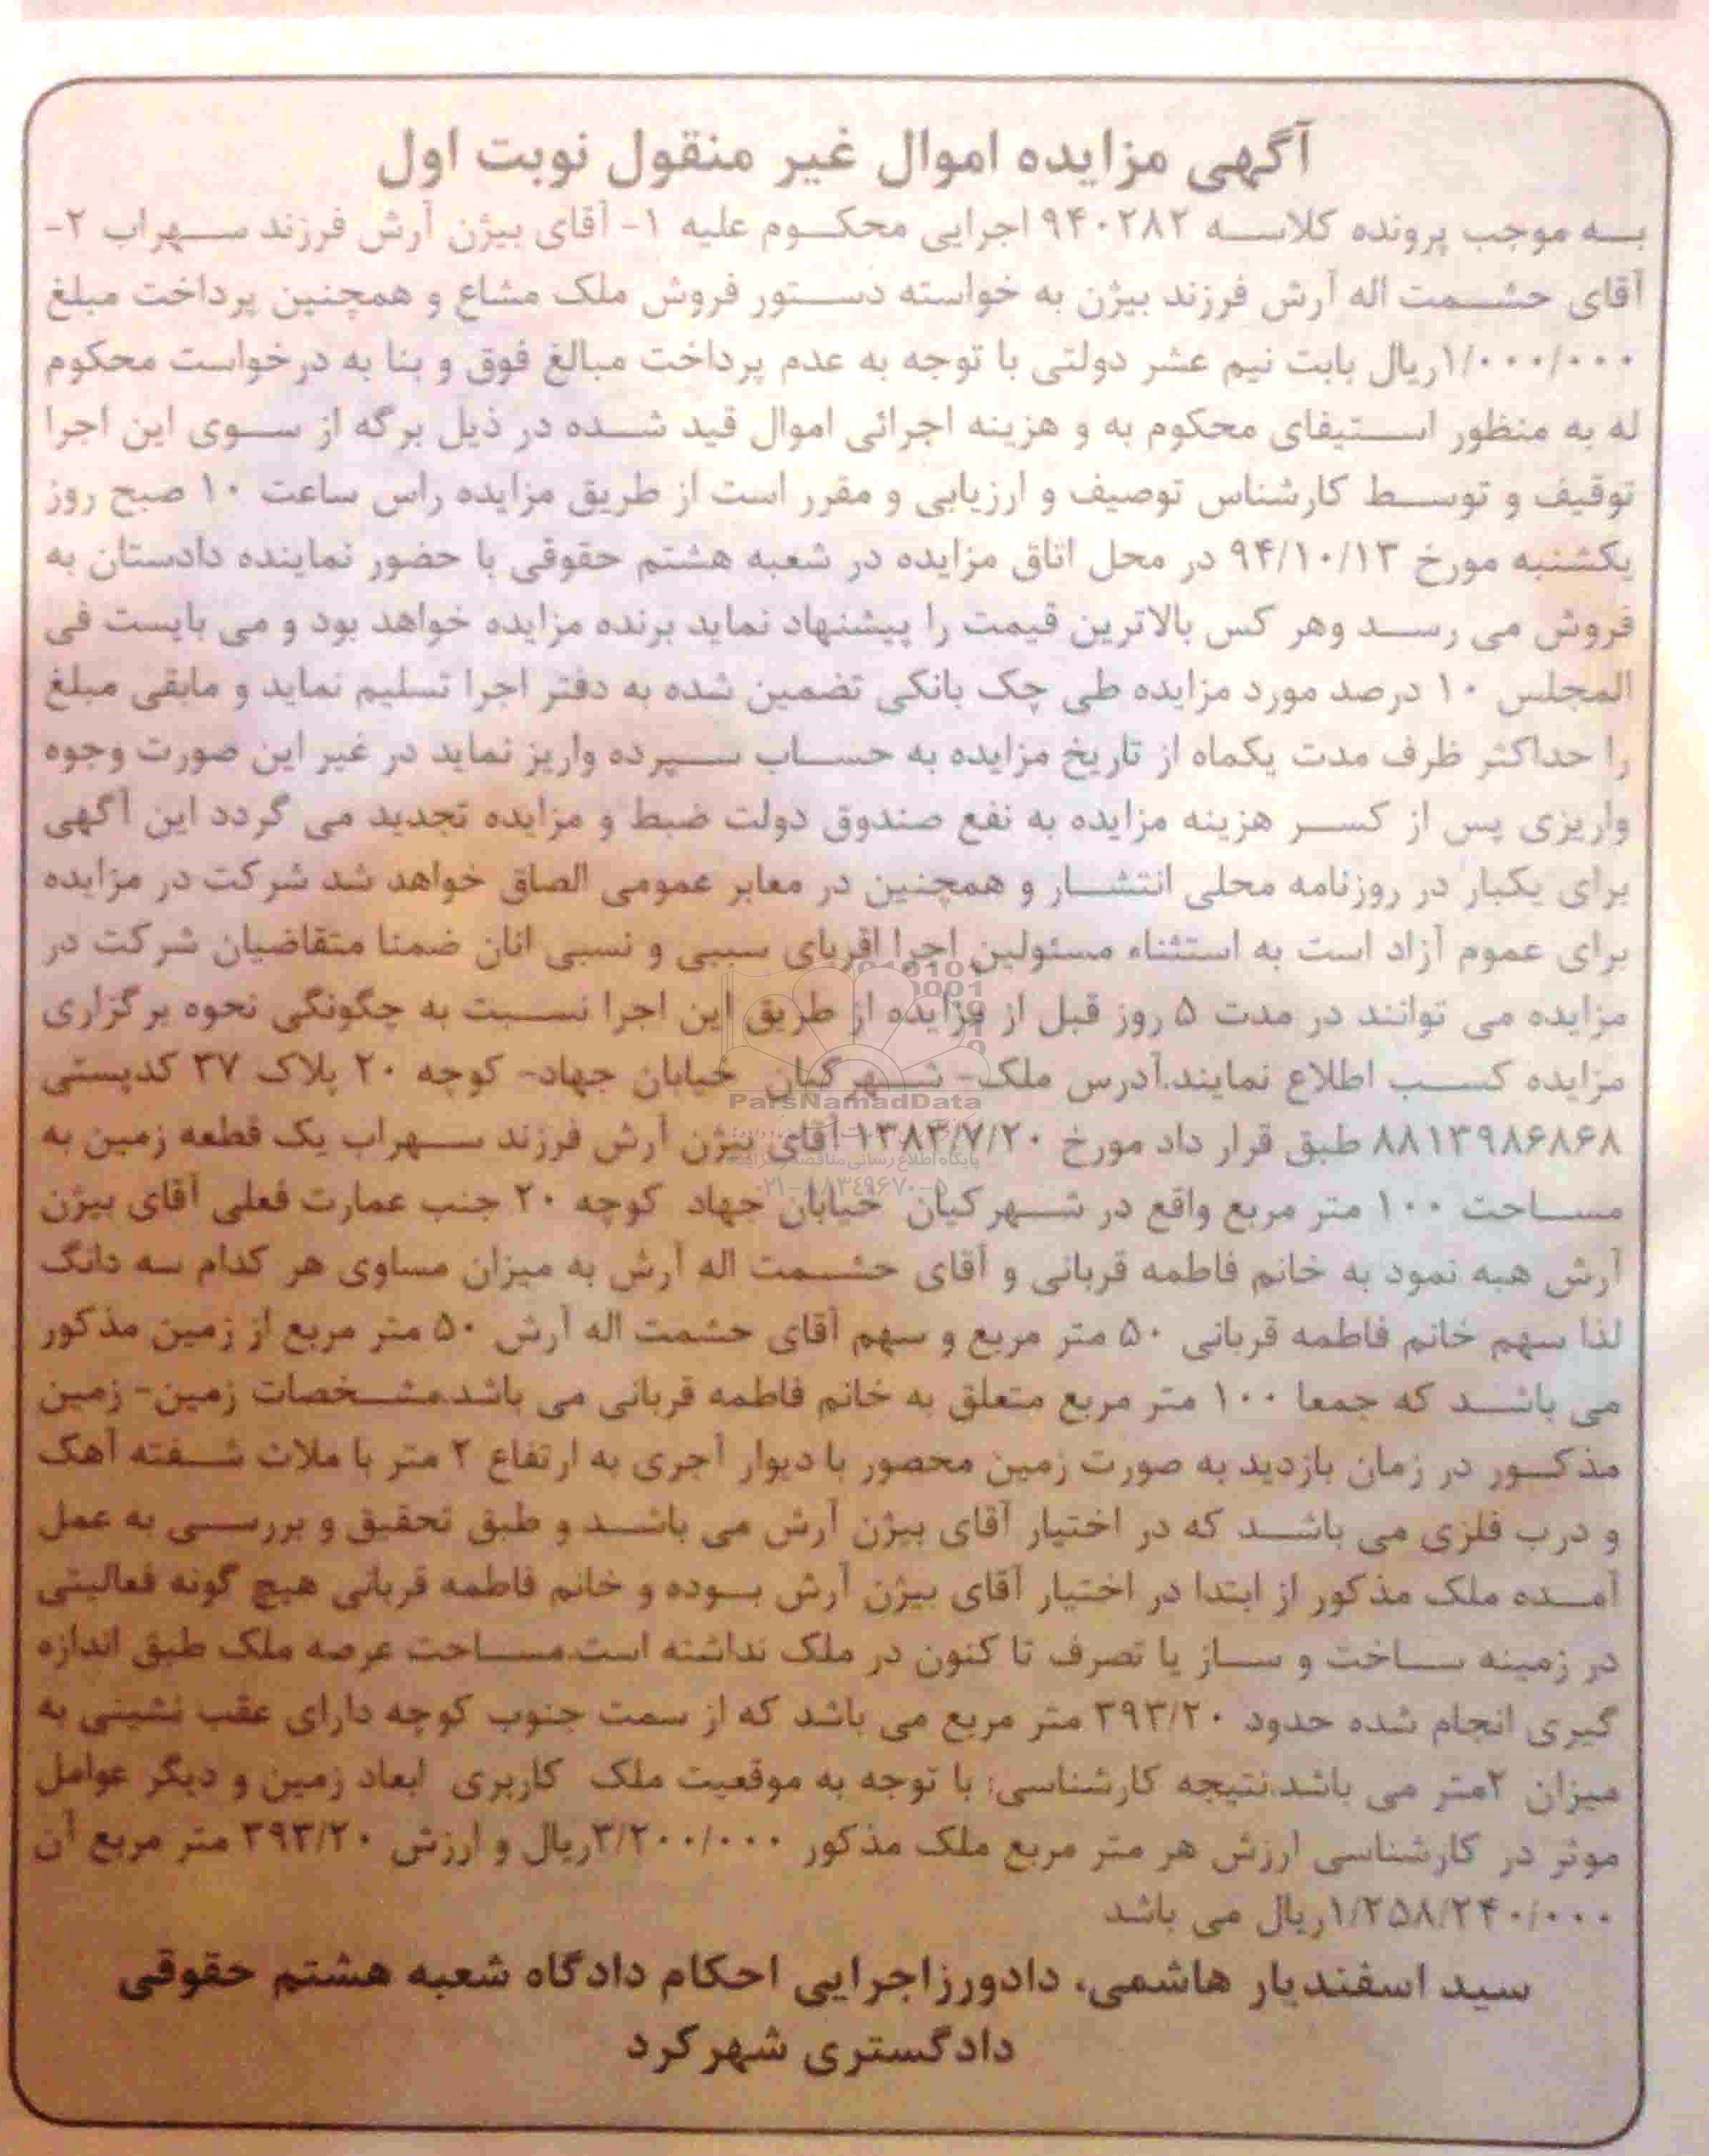 آگهی مزایده اموال غیر منقول نوبت اول
به موجب پرونده کلاسه ۹۴۰۲۸۲ اجرایی محکوم علیه ۱- آقای بیژن آرش فرزند سهراب ۲-
آقای حشمت اله آرش فرزند بیژن به خواسته دستور فروش ملک مشاع و همچنین پرداخت مبلغ
۱/۰۰۰/۰۰۰ریال بابت نیم عشر دولتی با توجه به عدم پرداخت مبالغ فوق و بنا به درخواست محکوم
له به منظور استیفای محکوم به و هزینه اجرائی اموال قید شده در ذیل برگه از سوی این اجرا
توقیف و توسط کارشناس توصیف و ارزیابی و مقرر است از طریق مزایده راس ساعت ۱۰ صبح روز
یکشنبه مورخ ۹۴/۱۰/۱۳ در محل اتاق مزایده در شعبه هشتم حقوقی با حضور نماینده دادستان به
فروش می رسد وهر کس بالاترین قیمت را پیشنهاد نماید برنده مزایده خواهد بود و می بایست فی
المجلس ۱۰ درصد مورد مزایده طی چک بانکی تضمین شده به دفتر اجرا تسلیم نماید و مابقی مبلغ
را حداکثر ظرف مدت یکماه از تاریخ مزایده به حساب سپرده واریز نماید در غیر این صورت وجوه
واریزی پس از کسر هزینه مزایده به نفع صندوق دولت ضبط و مزایده تجدید می گردد این آگهی
برای یکبار در روزنامه محلی انتشار و همچنین در معابر عمومی الصاق خواهد شد شرکت در مزایده
برای عموم آزاد است به استثناء مسئولین اجرا اقربای سببی و نسبی انان ضمنا متقاضیان شرکت در
مزایده می توانند در مدت ۵ روز قبل از مزایده از طریق این اجرا نسبت به چگونگی نحوه برگزاری
مزایده کسب اطلاع نمایند.آدرس ملک- شهرکیان خیابان جهاد- کوچه ۲۰ پلاک ۳۷ کدپستی
ParsNamadData
۸۸۱۳۹۸۶۸۶۸ طبق قرار داد مورخ ۱۳۸۳/۷/۲۰ آقای بیژن آرش فرزند سهراب یک قطعه زمین به
پایگاه اطلاع رسانی مناقصه و مزایده
۰۲۱-۸۸۳۴۹۶۷۰-۵
مساحت ۱۰۰ متر مربع واقع در شهرکیان خیابان جهاد کوچه ۲۰ جنب عمارت فعلی آقای بیژن
آرش هبه نمود به خانم فاطمه قربانی و آقای حشمت اله آرش به میزان مساوی هر کدام سه دانگ
لذا سهم خانم فاطمه قربانی ۵۰ متر مربع و سهم آقای حشمت اله آرش ۵۰ متر مربع از زمین مذکور
می باشد که جمعا ۱۰۰ متر مربع متعلق به خانم فاطمه قربانی می باشد.مشخصات زمین- زمین
مذکور در زمان بازدید به صورت زمین محصور با دیوار آجری به ارتفاع ۲ متر با ملات شفته آهک
و درب فلزی می باشد که در اختیار آقای بیژن آرش می باشد و طبق تحقیق و بررسی به عمل
آمده ملک مذکور از ابتدا در اختیار آقای بیژن آرش بوده و خانم فاطمه قربانی هیچ گونه فعالیتی
در زمینه ساخت و ساز یا تصرف تا کنون در ملک نداشته است.مساحت عرصه ملک طبق اندازه
گیری انجام شده حدود ۳۹۳/۲۰ متر مربع می باشد که از سمت جنوب کوچه دارای عقب نشینی به
میزان ۲متر می باشد.نتیجه کارشناسی: با توجه به موقعیت ملک کاربری ابعاد زمین و دیگر عوامل
موثر در کارشناسی ارزش هر متر مربع ملک مذکور ۳/۲۰۰/۰۰۰ریال و ارزش ۳۹۳/۲۰ متر مربع آن
۱/۲۵۸/۲۴۰/۰۰۰ریال می باشد
سید اسفندیار هاشمی، دادورزاجرایی احکام دادگاه شعبه هشتم حقوقی
دادگستری شهرکرد